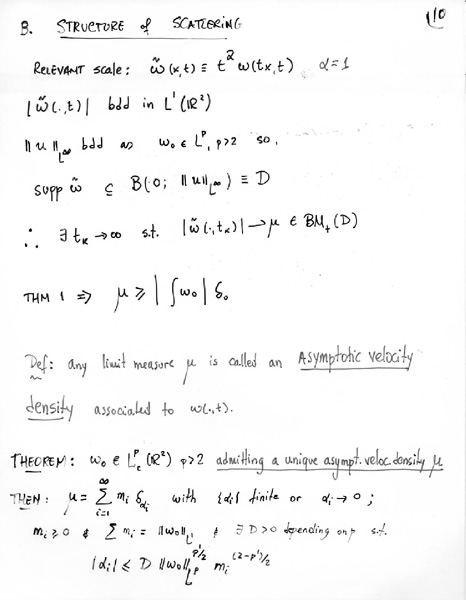 10
B. STRUCTURE of SCATTERING
RELEVANT scale: ω̃(x,t) ≡ t² ω(tx,t) α=1
|ω̃(·,t)| bdd in L¹(ℝ²)
‖u‖_{L^∞} bdd as ω₀ ∈ L^p, p>2 so,
supp ω̃ ⊆ B(0; ‖u‖_{L^∞}) ≡ D
∴ ∃ t_k → ∞ s.t. |ω̃(·,t_k)| ⇀ μ ∈ BM₊(D)
THM 1 ⇒ μ ≥ |∫ω₀| δ₀
Def: any limit measure μ is called an Asymptotic velocity
density associated to ω(·,t).
THEOREM: ω₀ ∈ L^p_c(ℝ²) p>2 admitting a unique asympt. veloc. density μ
THEN: μ = ∑_{i=1}^∞ m_i δ_{α_i} with {α_i} finite or α_i → 0;
m_i ≥ 0 & ∑ m_i = ‖ω₀‖_{L¹} & ∃ D>0 depending on p s.t.
|α_i| ≤ D ‖ω₀‖_{L^p}^{p'/2} m_i^{(2-p')/2}